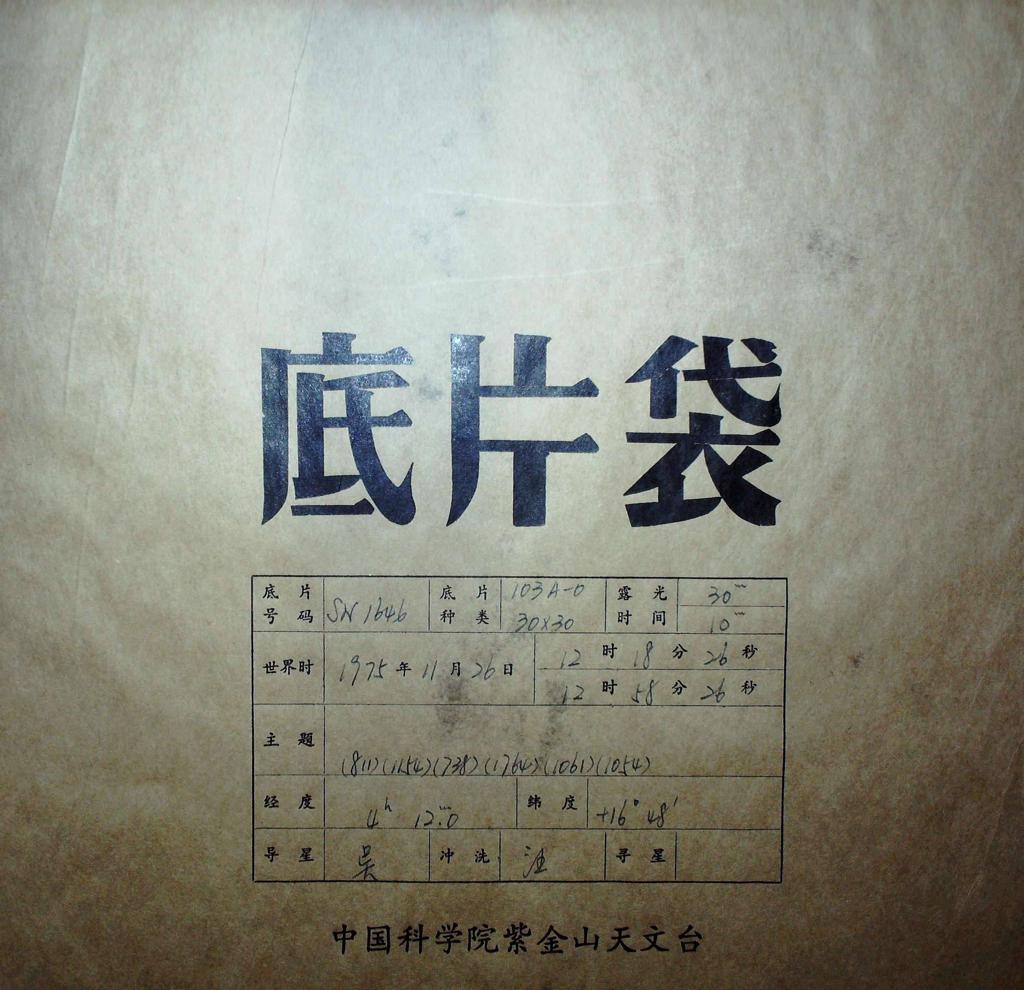 底片袋
底片号码 SN 1646 底片种类 103A-0 30×30 露光时间 30ᵐ 10ᵐ
世界时 1975年11月26日 12时18分26秒
12时58分26秒
主题 (811)(1154)(738)(1764)(1061)(1054)
经度 4ʰ 12ᵐ.0 纬度 +16° 48′
导星 吴 冲洗 汪 寻星
中国科学院紫金山天文台